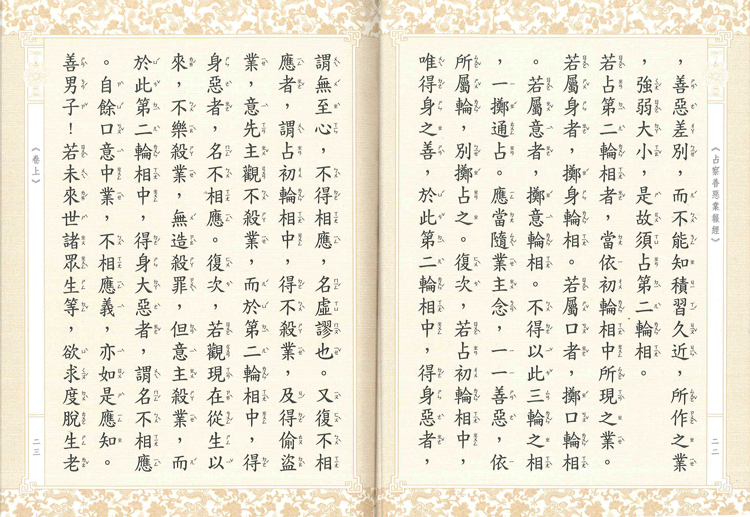 《占察善惡業報經》
二二
，善惡差別，而不能知積習久近，所作之業
，強弱大小，是故須占第二輪相。
若占第二輪相者，當依初輪相中所現之業。
若屬身者，擲身輪相。若屬口者，擲口輪相
。若屬意者，擲意輪相。不得以此三輪之相
，一擲通占。應當隨業主念，一一善惡，依
所屬輪，別擲占之。復次，若占初輪相中，
唯得身之善，於此第二輪相中，得身惡者，
謂無至心，不得相應，名虛謬也。又復不相
應者，謂占初輪相中，得不殺業，及得偷盜
業，意先主觀不殺業，而於第二輪相中，得
身惡者，名不相應。復次，若觀現在從生以
來，不樂殺業，無造殺罪，但意主殺業，而
於此第二輪相中，得身大惡者，謂名不相應
。自餘口意中業，不相應義，亦如是應知。
善男子！若未來世諸眾生等，欲求度脫生老
《卷上》
二三